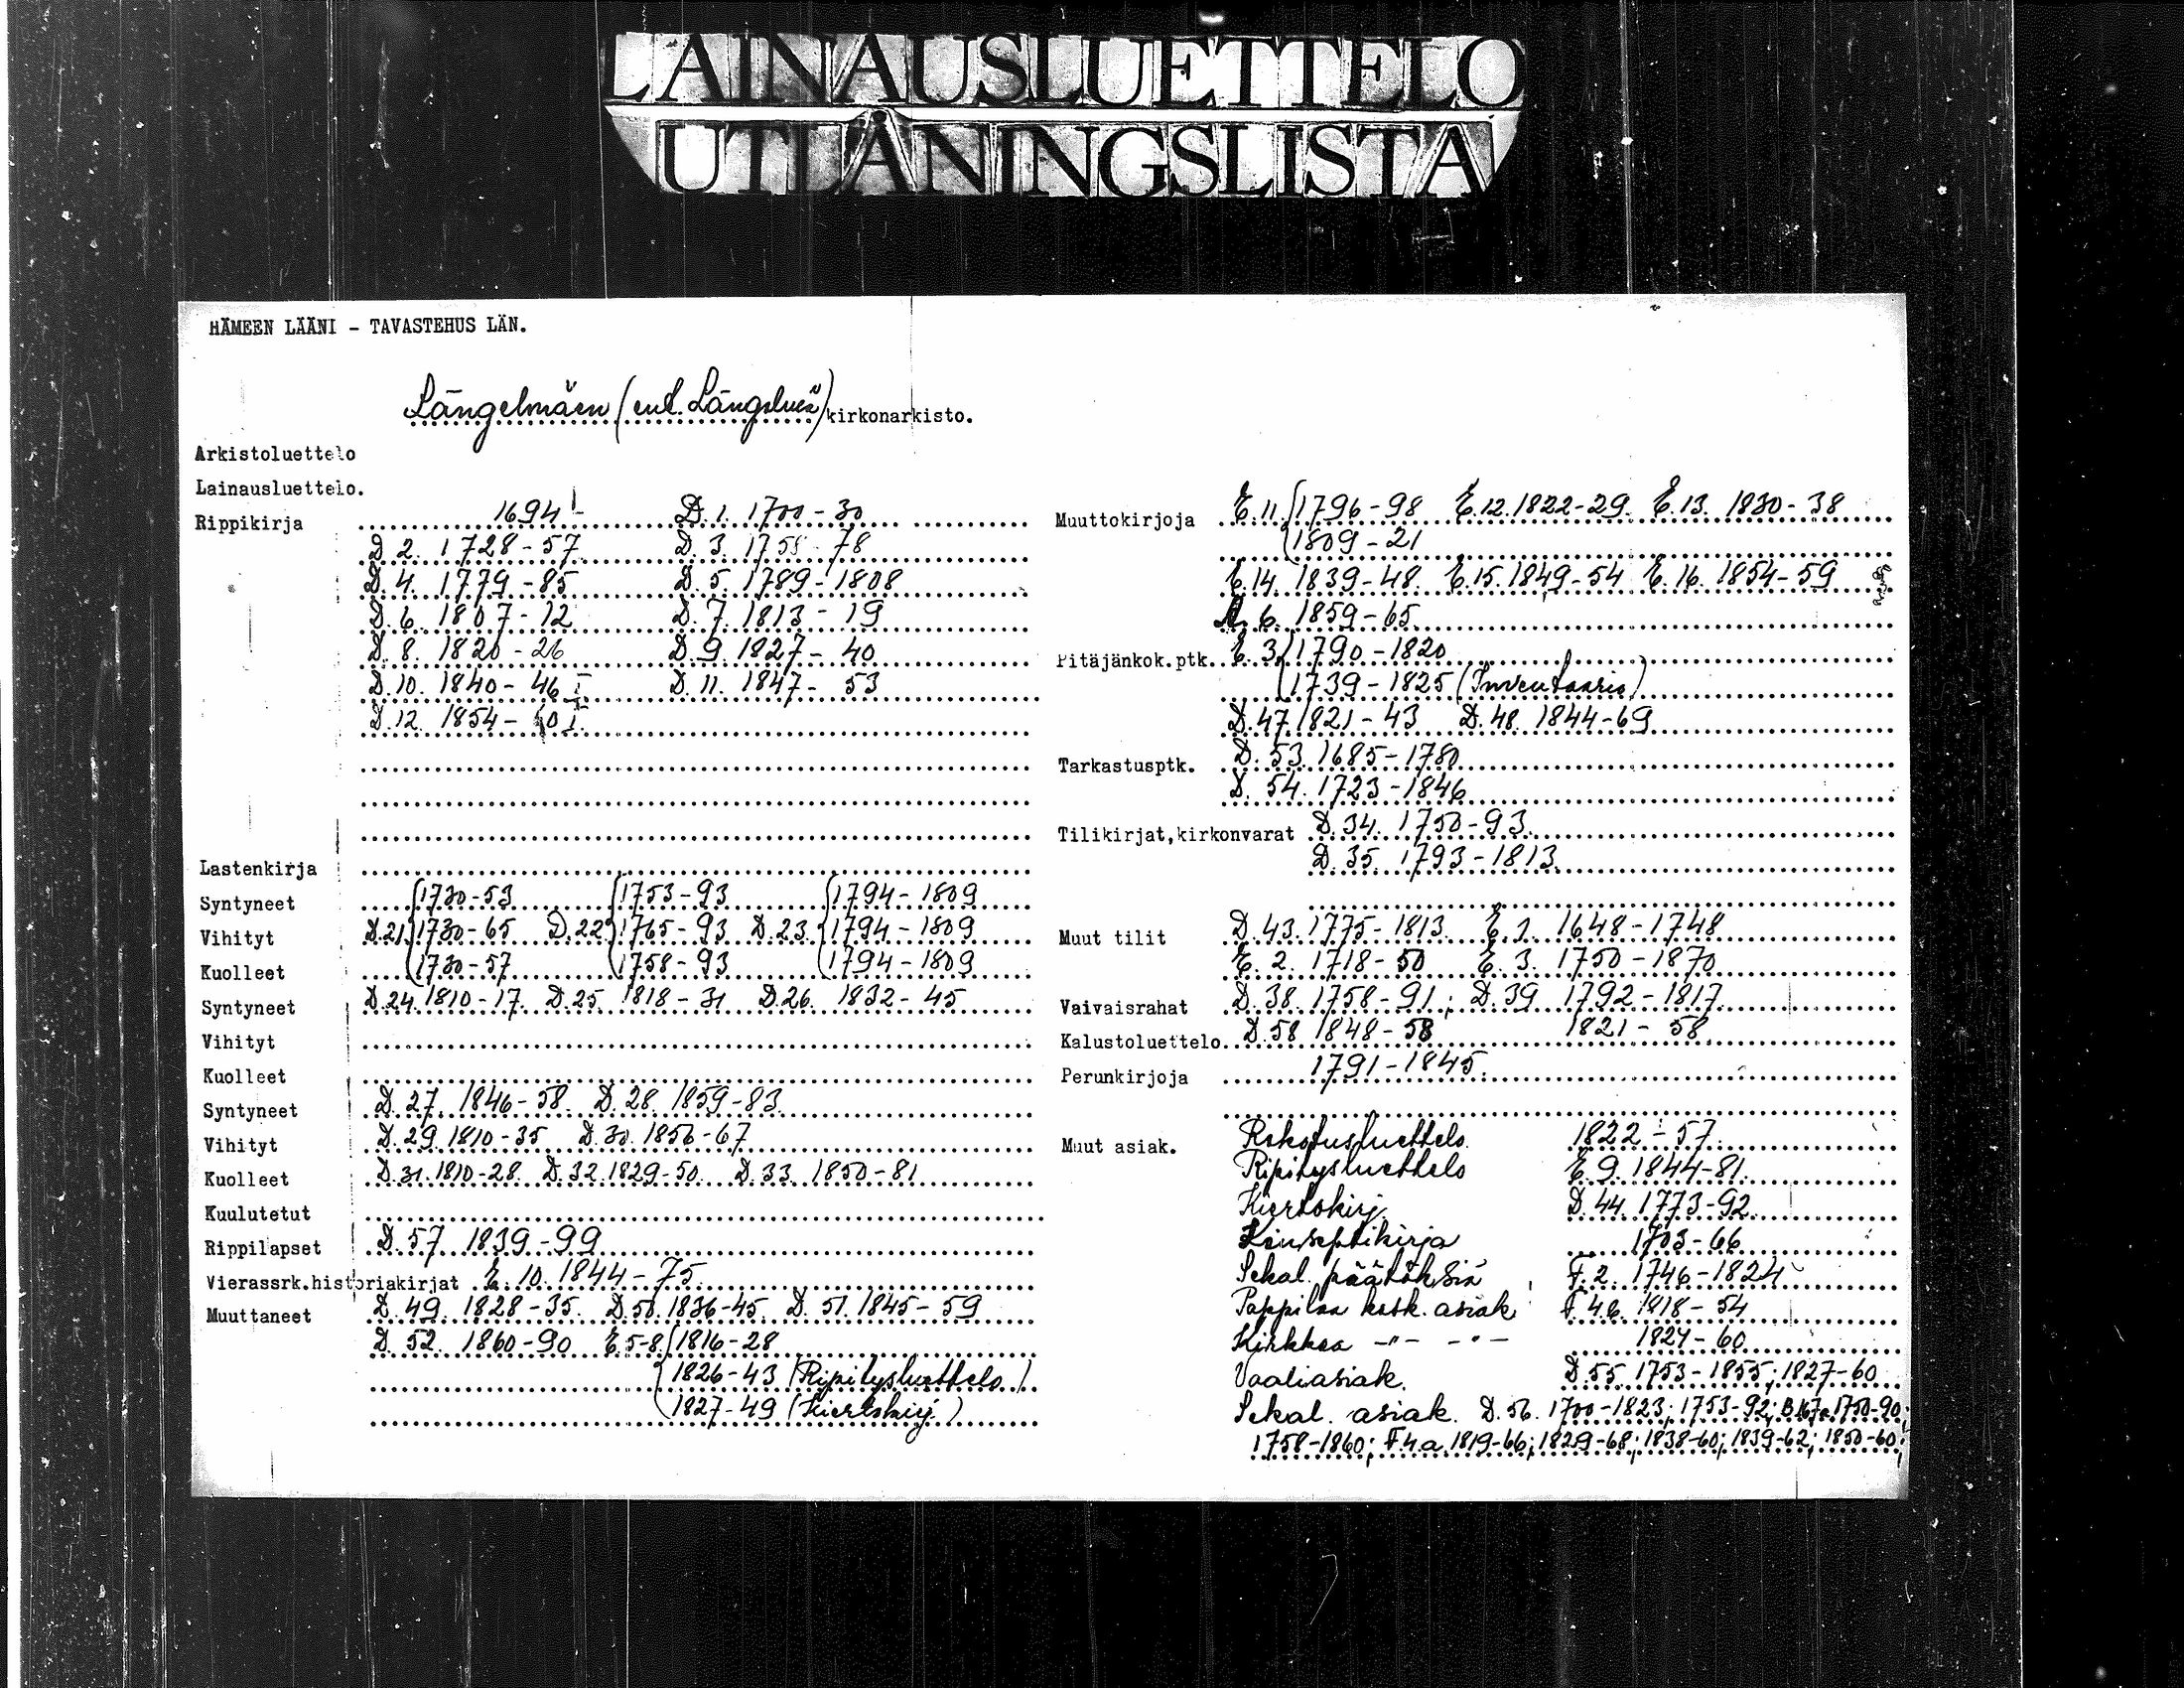 LAINAUSLUETTELO
UTLÅNINGSLISTA
HÄMEEN LÄÄNI - TAVASTEHUS LÄN.
Längelmäen (ent. Längelmä) kirkonarkisto.
Arkistoluettelo
Lainausluettelo.
Rippikirja 1694 - D.1. 1700-30
D.2. 1728-57 D.3. 1758-78
D.4. 1779-85 D.5. 1789-1808
D.6. 1807-12 D.7. 1813-19
D.8. 1820-26 D.9. 1827-40
D.10. 1840-46 I D.11. 1847-53
D.12. 1854-60 I
Lastenkirja
Syntyneet 1730-53 1753-93 1794-1809
Vihityt D.21. 1730-65 D.22 1765-93 D.23. 1794-1809
Kuolleet 1730-57 1758-93 1794-1809
Syntyneet D.24. 1810-17. D.25. 1818-31 D.26. 1832-45
Vihityt
Kuolleet
Syntyneet D.27. 1846-58. D.28. 1859-83.
Vihityt D.29. 1810-35 D.30. 1856-67
Kuolleet D.31. 1810-28. D.32. 1829-50. D.33. 1850-81
Kuulutetut
Rippilapset D.57 1839-99
Vierassrk.historiakirjat E.10. 1844-75.
Muuttaneet D.49. 1828-35. D.50. 1836-45. D.51. 1845-59
D.52. 1860-90 E.5-8. 1816-28
1826-43 (Ripitysluettelo)
1827-49 (Kiertokirj.)
Muuttokirjoja E.11. 1796-98 E.12. 1822-29. E.13. 1830-38
1809-21
E.14. 1839-48. E.15. 1849-54 E.16. 1854-59
6. 1859-65.
Pitäjänkok.ptk. E.3. 1790-1820
1739-1825 (Inventaario)
D.47. 1821-43 D.48. 1844-69
Tarkastusptk. D.53. 1685-1780
D.54. 1723-1846
Tilikirjat,kirkonvarat D.34. 1750-93.
D.35. 1793-1813.
Muut tilit D.43. 1775-1813. E.1. 1648-1748
E.2. 1718-50 E.3. 1750-1870
Vaivaisrahat D.38. 1758-91; D.39 1792-1817.
Kalustoluettelo. D.58 1848-58 1821-58
Perunkirjoja 1791-1845.
Muut asiak. Rokotusluettelo. 1822-57.
Ripitysluettelo E.9. 1844-81.
Kiertokirj. D.44. 1773-92.
Konseptikirja 1703-66
Sekal. päätöksiä F.2. 1746-1824
Pappilaa kosk. asiak. 1818-54
Kirkkoa -"- -"- 1824-60
Vaaliasiak. D.55. 1753-1855; 1827-60
Sekal. asiak. D.56. 1700-1823; 1753-92; 1750-90;
1758-1860; F.4.a. 1819-66; 1829-68; 1838-60; 1839-62; 1850-60;